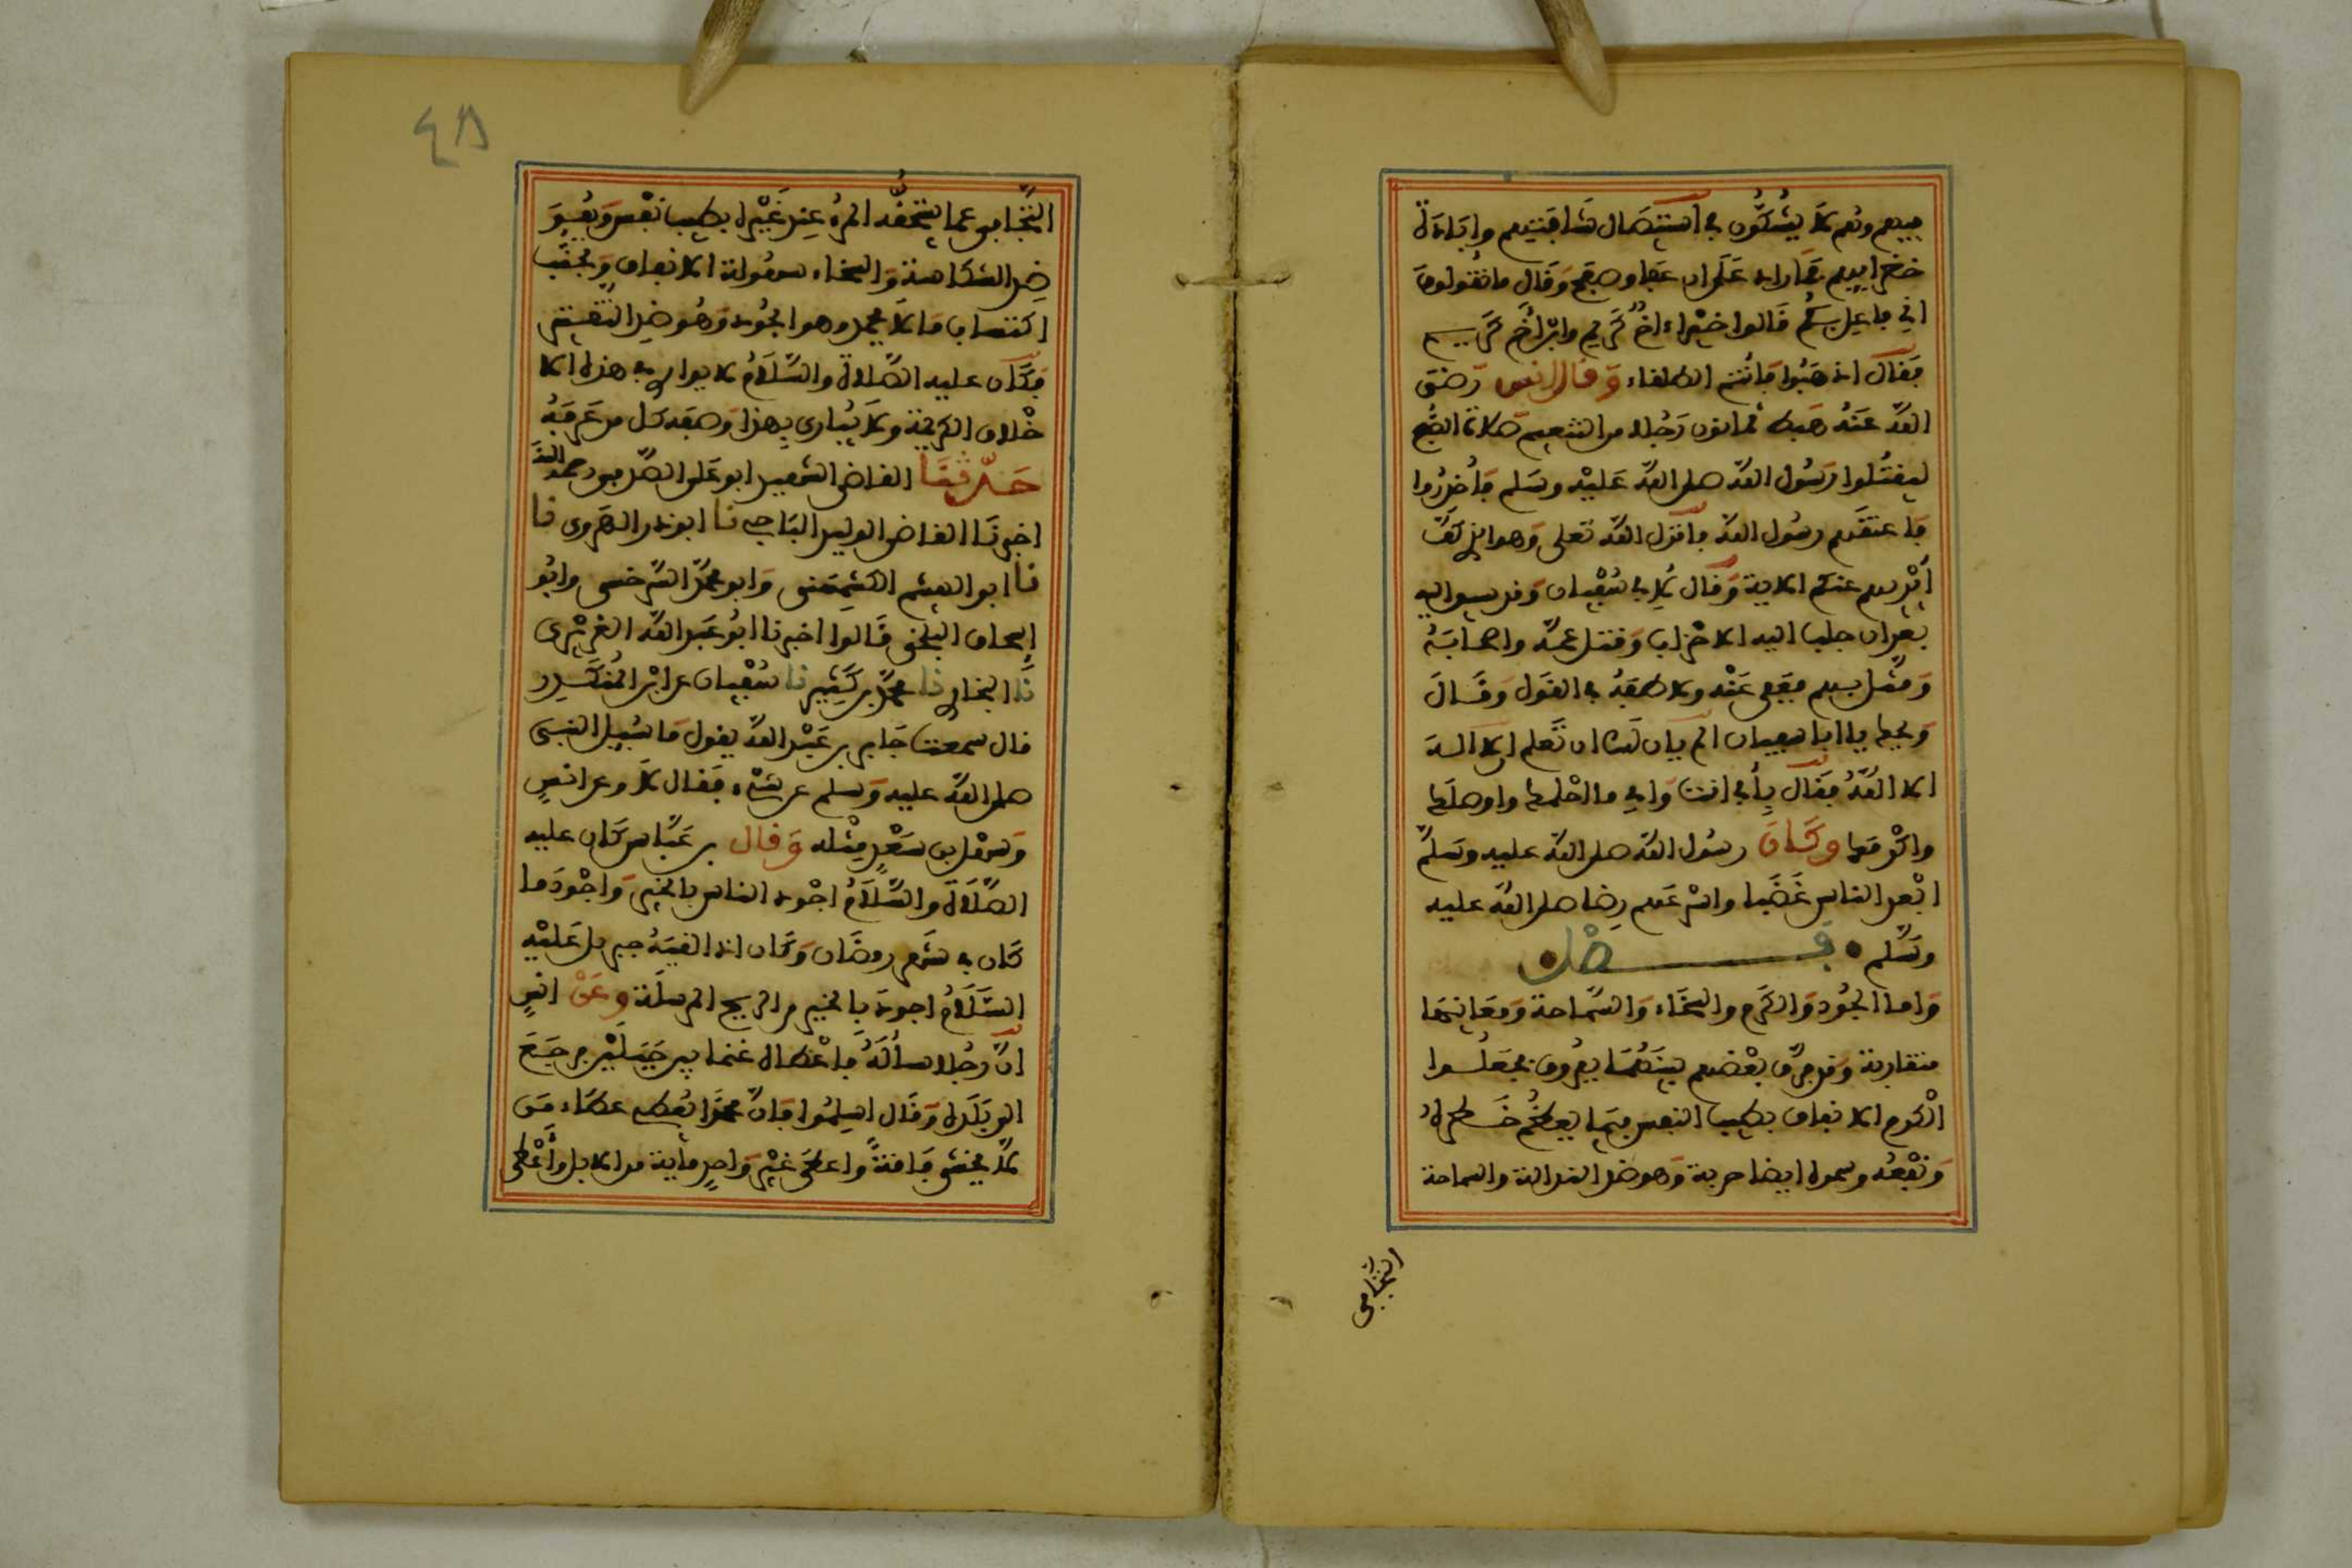 بيدهم وهم لا يشكون في استئصال شافتهم وإبادة
خضرايهم فما زاد على ان عفا وصفح وقال ما تقولون
اني فاعل بكم قالوا خيرا اخ كريم وابن اخ كريم
فقال اذهبوا فانتم الطلقاء وقال انس رضي
الله عنه هبط ثمانون رجلا من التنعيم صلاة الصبح
ليقتلوا رسول الله صلى الله عليه وسلم فأخذوا
فاعتقهم رسول الله فانزل الله تعلى وهو الذي كف
أيديهم عنكم الاية وقال لأبي سفيان وقد سيق اليه
بعد ان جلب اليه الاحزاب وقتل عمه واصحابه
ومثل بهم فعفى عنه ولاطفه في القول وقال
ويحك يا ابا سفيان الم يان لك ان تعلم ان لا اله
الا الله فقال بأبي انت وامي ما احلمك واوصلك
واكرمك وكان رسول الله صلى الله عليه وسلم
ابعد الناس غضبا واسرعهم رضا صلى الله عليه
وسلم • فصل •
واما الجود والكرم والسخاء والسماحة ومعانيها
متقاربة وقد فرق بعضهم بينهما بفروق فجعلوا
الكرم الانفاق بطيب النفس فيما يعظم خطره
ونفعه وسموه ايضا حرية وهو ضد النذالة والسماحة
التجافي
٤٨
التجافي عما يستحقه المرء عند غيره بطيب نفس وهو
ضد الشكاسة والسخاء سهولة الانفاق وتجنب
اكتساب ما لا يحمد وهو الجود وهو ضد التقتير
فكان عليه الصلاة والسلام لا يوازى في هذه الا
خلاق الكريمة ولا يبارى بهذا وصفه كل من عرفه
حدثنا القاضي الشهيد ابو علي الصدفي رحمه الله
اخبرنا القاضي ابو الوليد الباجي نا ابو ذر الهروي نا
نا ابو الهيثم الكشميهني وابو محمد السرخسي وابو
إسحاق البلخي قالوا اخبرنا ابو عبد الله الفربري
نا البخاري نا محمد بن كثير نا سفيان عن ابن المنكدر
قال سمعت جابر بن عبد الله يقول ما سئل النبي
صلى الله عليه وسلم عن شيء فقال لا وعن انس
وسهل بن سعد مثله وقال بن عباس كان عليه
الصلاة والسلام اجود الناس بالخير واجود ما
كان في شهر رمضان وكان اذا لقيه جبريل عليه
السلام اجود بالخير من الريح المرسلة وعن انس
ان رجلا سأله فاعطاه غنما بين جبلين فرجع
الى بلده وقال اسلموا فان محمدا يعطي عطاء من
لا يخشى فاقة واعطى غير واحد مايه من الابل وأعطى